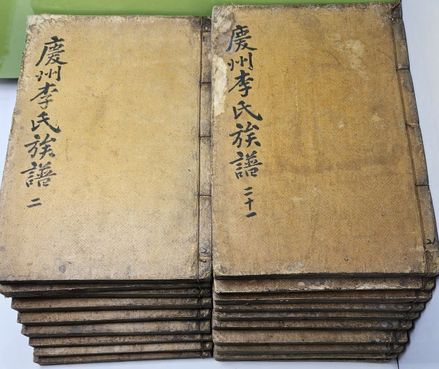 慶州李氏族譜 二
慶州李氏族譜 二十一